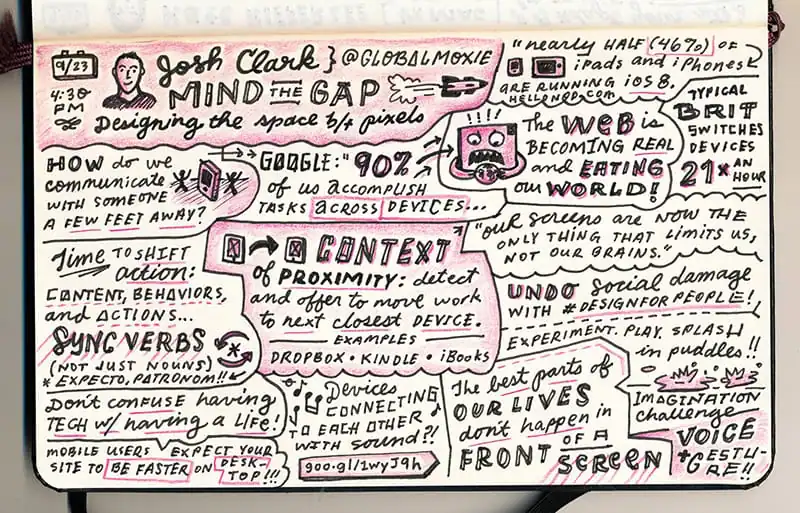 9/23
4:30
PM
Josh Clark } @GLOBALMOXIE
MIND THE GAP
Designing the space b/t pixels
"nearly HALF (46%) OF
iPads and iPhones
ARE RUNNING iOS 8.
TYPICAL
BRIT
SWITCHES
DEVICES
21x AN
HOUR
HOW do we
communicate
WITH SOMEONE
A FEW FEET AWAY?
GOOGLE: "90%
of us accomplish
TASKS ACROSS DEVICES...
The WEB is
BECOMING REAL
and EATING
our WORLD!
"OUR SCREENS ARE NOW THE
ONLY THING THAT LIMITS US,
NOT OUR BRAINS."
Time TO SHIFT
action:
CONTENT, BEHAVIORS,
and ACTIONS...
SYNC VERBS
(NOT JUST NOUNS) *
* EXPECTO, PATRONOM!!
CONTEXT
of PROXIMITY: detect
and offer to move work
to next closest DEVICE.
EXAMPLES
DROPBOX • KINDLE • iBooks
UNDO social damage
WITH #DESIGNFORPEOPLE!
EXPERIMENT. PLAY. SPLASH
in puddles!!
IMAGINATION
challenge
VOICE
+ GESTU-
RE!!
DON'T CONFUSE having
TECH w/ having a LIFE!
MOBILE USERS EXPECT YOUR
SITE TO BE FASTER ON DESK-
TOP!!!
Devices
CONNECTING
TO EACH OTHER
WITH SOUND?!
goo.gl/1wyJ9h
The best parts of
OUR LIVES
don't happen in
FRONT OF A
SCREEN